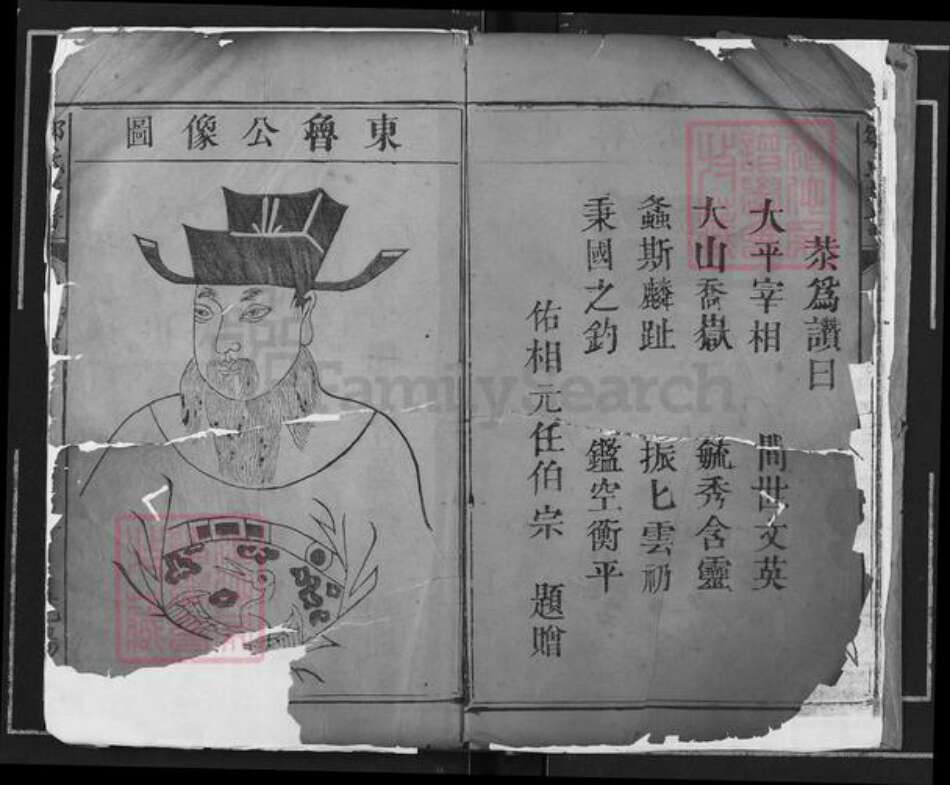 東魯公像圖
恭爲讚曰
大平宰相 間世文英
大山喬嶽 毓秀含靈
螽斯麟趾 振匕雲礽
秉國之鈞 鑑空衡平
佑相元任伯宗 題贈
FamilySearch